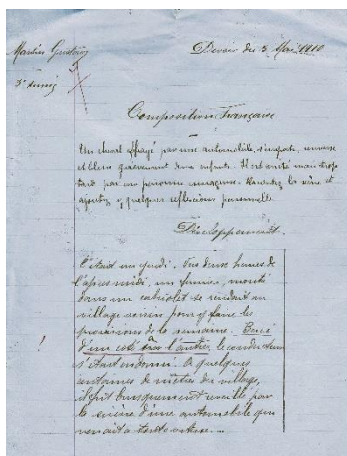 Martin
Devoir du 5 Mai 1910
3e année
Composition Française
Un cheval effrayé par une automobile, s'emporte, renverse
et blesse grièvement deux enfants. Il est arrêté mais trop
tard par une personne courageuse. Racontez la scène et
ajoutez y quelques réflexions personnelles.
Développement.
C'était un jeudi. Vers deux heures de
l'après midi, un fermier, monté
dans un cabriolet se rendait au
village voisin pour y faire les
provisions de la semaine. Bercé
d'un coté sur l'autre, le conducteur
s'était endormi. A quelques
centaines de mètres du village,
il fut brusquement éveillé par
la sirène d'une automobile qui
venait à toute vitesse...